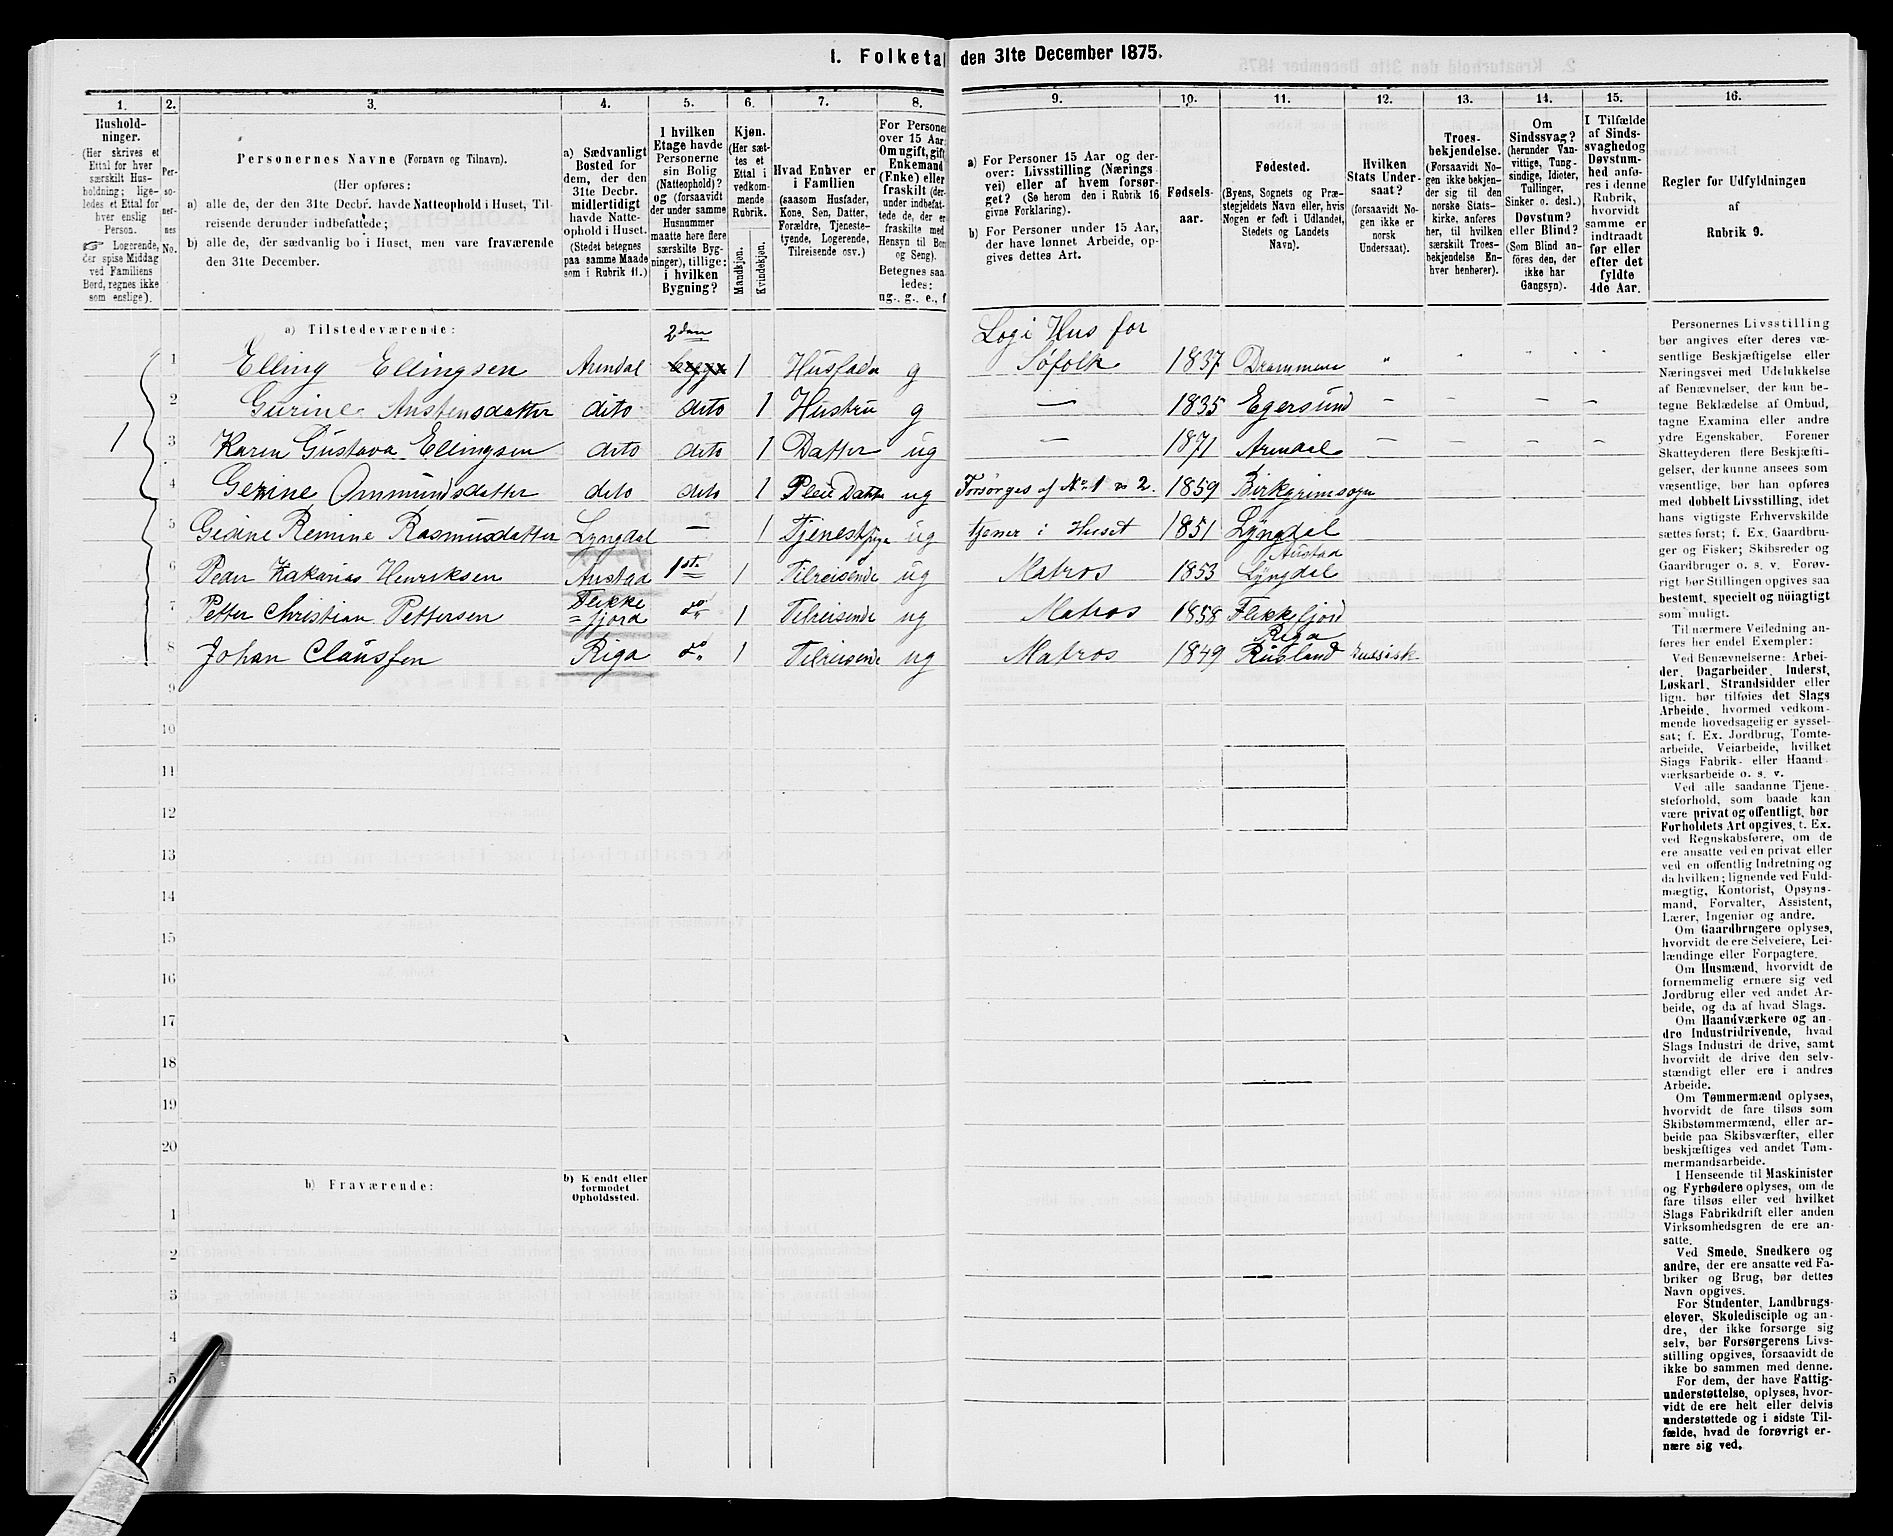 1. Folketal den 31te December 1875.
1. 2. 3. 4. 5. 6. 7. 8. 9. 10. 11. 12. 13. 14. 15. 16.
Husholdninger.
(Her skrives et Ettal for hver særskilt Husholdning; ligeledes et Ettal for hver enslig Person.
☞ Logerende, der spise Middag ved Familiens Bord, regnes ikke som enslige).
Personernes No.
Personernes Navne (Fornavn og Tilnavn).
(Her opføres:
a) alle de, der den 31te Decbr. havde Natteophold i Huset, Tilreisende derunder indbefattede;
b) alle de, der sædvanlig bo i Huset, men vare fraværende den 31te December.
a) Sædvanligt Bosted for dem, der den 31te Decbr. midlertidigt havde Natteophold i Huset.
(Stedet betegnes paa samme Maade som i Rubrik 11.)
I hvilken Etage havde Personerne sin Bolig (Natteophold)?
og (forsaavidt der under samme Husnummer maatte høre flere særskilte Bygninger), tillige:
i hvilken Bygning?
Kjøn.
(Her sættes et Ettal i vedkommende Rubrik.
Mandkjøn.
Kvindekjøn.
Hvad Enhver er i Familien
(saasom Husfader, Kone, Søn, Datter, Forældre, Tjenestetyende, Logerende, Tilreisende osv.)
For Personer over 15 Aar: Om ugift, gift, Enkemand (Enke) eller fraskilt (derunder indbefattede de, der er fraskilte med Hensyn til Bord og Seng).
Betegnes saaledes:
ug., g., e., f.
a) For Personer 15 Aar og derover: Livsstilling (Næringsvei) eller af hvem forsørget? (Se herom den i Rubrik 16 givne Forklaring).
b) For Personer under 15 Aar, der have lønnet Arbeide, opgives dettes Art.
Fødselsaar.
Fødested.
(Byens, Sognets og Præstegjeldets Navn eller, hvis Nogen er født i Udlandet, Stedets og Landets Navn).
Hvilken Stats Undersaat?
(forsaavidt Nogen ikke er norsk Undersaat).
Troesbekjendelse.
(Forsaavidt Nogen ikke bekjender sig til den norske Statskirke, anføres her, til hvilken særskilt Troesbekjendelse Enhver henhører).
Om Sindssvag?
(herunder Vanvittige, Tungsindige, Idioter, Tullinger, Sinker o. desl.)
Døvstum? eller Blind?
(Som Blind anføres den, der ikke har Gangsyn).
I Tilfælde af Sindssvaghed og Døvstumhed anføres i denne Rubrik, hvorvidt samme er indtraadt før eller efter det fyldte 4de Aar.
Regler for Udfyldningen
af
Rubrik 9.
a) Tilstedeværende:
1 Elling Ellingsen Arendal 2den 1 Husfader g Logi Hus for Søfolk 1837 Drammen " " " "
2 Gurine Austensdatter dito dito 1 Hustru g — 1835 Egersund — — — —
1
3 Karen Gustava Ellingsen dito dito 1 Datter ug — 1871 Arendal — — — —
4 Gerine Ommundsdatter dito dito 1 Pleie Datter ug Forsørges af No 1 & 2. 1859 Birkgrimsogn
5 Gesine Remine Rasmusdatter Lyngdal — 1 Tjenestpige ug tjener i Huset 1851 Lyngdal
6 Peder Zakarias Henriksen Austad 1ste 1 Tilreisende ug Matros 1853 Austad Lyngdal
7 Petter Christian Pettersen Flekkefjord do 1 Tilreisende ug Matros 1858 Flekkefjord
8 Johan Claussen Riga do 1 Tilreisende ug Matros 1849 Riga Rusland Russisk
9
10
11
12
13
14
15
16
17
18
19
20
b) Fraværende:
b) Kjendt eller formodet Opholdssted.
1
2
3
4
5
Personernes Livsstilling
bør angives efter deres væ-
sentlige Beskjæftigelse eller
Næringsvei med Udelukkelse
af Benævnelser, der kun be-
tegne Beklædelse af Ombud,
tagne Examina eller andre
ydre Egenskaber. Forener
Skatteyderen flere Beskjæfti-
gelser, der kunne ansees som
væsentlige, bør han opføres
med dobbelt Livsstilling, idet
hans vigtigste Erhvervskilde
sættes først; f. Ex. Gaardbru-
ger og Fisker; Skibsreder og
Gaardbruger o. s. v. Forøv-
rigt bør Stillingen opgives saa
bestemt, specielt og nöiagtigt
som muligt.
Til nærmere Veiledning an-
føres her endel Exempler:
Ved Benævnelserne: Arbei-
der, Dagarbeider, Inderst,
Løskarl, Strandsidder eller
lign. bør tilføies det Slags
Arbeide, hvormed vedkom-
mende hovedsagelig er syssel-
sat; f. Ex. Jordbrug, Tomte-
arbeide, Veiarbeide, hvilket
Slags Fabrik- eller Haand-
værksarbeide o. s. v.
Ved alle saadanne Tjene-
steforhold, som baade kan
være privat og offentligt, bør
Forholdets Art opgives, t. Ex.
ved Regnskabsførere, om de
ere ansatte ved en privat eller
ved en offentlig Indretning og
da hvilken; lignende ved Fuld-
mægtig, Kontorist, Opsyns-
mand, Forvalter, Assistent,
Lærer, Ingeniør og andre.
Om Gaardbrugere oplyses,
hvorvidt de ere Selveiere, Lei-
lændinge eller Forpagtere.
Om Husmænd, hvorvidt de
fornemmelig ernære sig ved
Jordbrug eller ved andet Ar-
beide, og da af hvad Slags.
Om Haandværkere og an-
dre Industridrivende, hvad
Slags Industri de drive, samt
hvorvidt de drive den selv-
stændigt eller ere i andres
Arbeide.
Om Tømmermænd oplyses,
hvorvidt de fare tilsøs som
Skibstømmermænd, eller ar-
beide paa Skibsværfter, eller
beskjæftiges ved andet Tøm-
mermandsarbeide.
I Henseende til Maskinister
og Fyrbødere oplyses, om de
fare tilsøs eller ved hvilket
Slags Fabrikdrift eller anden
Virksomhedsgren de ere an-
satte.
Ved Smede, Snedkere og
andre, der ere ansatte ved Fa-
briker og Brug, bør dettes
Navn opgives.
For Studenter, Landbrugs-
elever, Skoledisciple og an-
dre, der ikke forsørge sig
selv, bør Forsørgerens Livs-
stilling opgives, forsaavidt de
ikke bo sammen med denne.
For dem, der have Fattig-
understøttelse, oplyses, hvor-
vidt de ere helt eller delvis
understøttede og i sidste Til-
fælde, hvad de forøvrigt er-
nære sig ved.